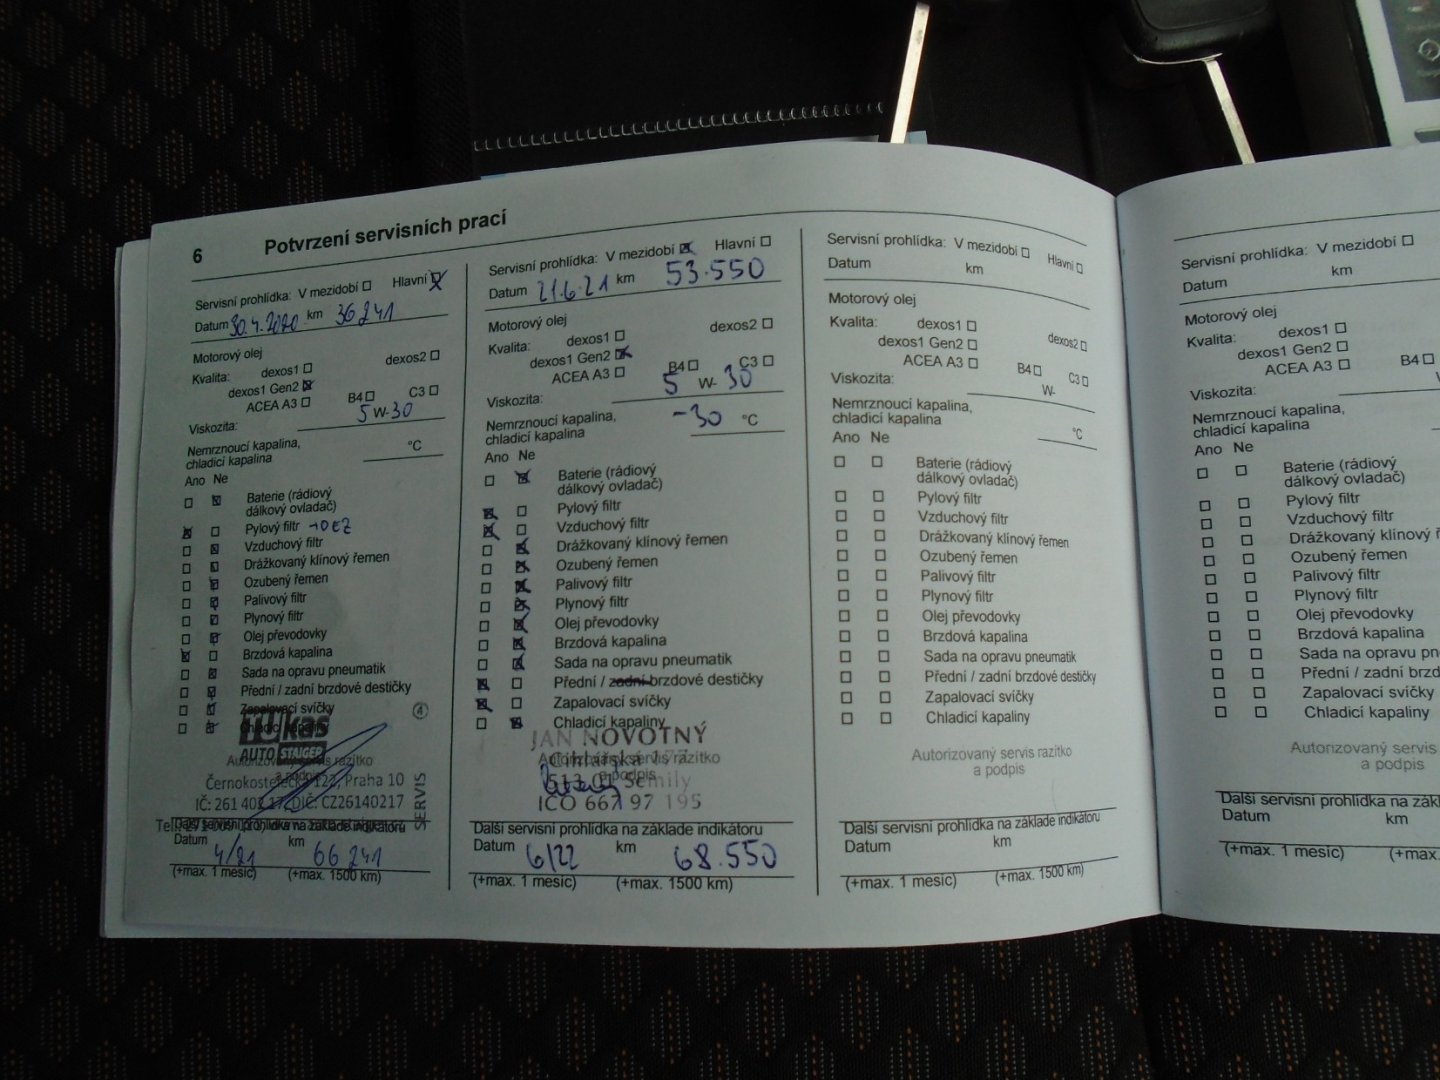 6 Potvrzení servisních prací
Servisní prohlídka: V mezidobí Hlavní
Datum 30.4.2020 km 36 241
Motorový olej
Kvalita: dexos1 dexos2
dexos1 Gen2
ACEA A3 B4 C3
Viskozita: 5 W-30
Nemrznoucí kapalina,
chladicí kapalina °C
Ano Ne
Baterie (rádiový
dálkový ovladač)
Pylový filtr
Vzduchový filtr
Drážkovaný klínový řemen
Ozubený řemen
Palivový filtr
Plynový filtr
Olej převodovky
Brzdová kapalina
Sada na opravu pneumatik
Přední / zadní brzdové destičky
Zapalovací svíčky
Chladicí kapaliny
AUTO STAIGER
Autorizovaný servis razítko
a podpis
Praha 10
DIČ: CZ26140217
SERVIS
Další servisní prohlídka na základe indikátoru
Datum 4/21 km 66 241
(+max. 1 mesíc) (+max. 1500 km)
Servisní prohlídka: V mezidobí Hlavní
Datum 21.6.21 km 53.550
Motorový olej
Kvalita: dexos1 dexos2
dexos1 Gen2
ACEA A3 B4 C3
Viskozita: 5 W-30
Nemrznoucí kapalina,
chladicí kapalina -30 °C
Ano Ne
Baterie (rádiový
dálkový ovladač)
Pylový filtr
Vzduchový filtr
Drážkovaný klínový řemen
Ozubený řemen
Palivový filtr
Plynový filtr
Olej převodovky
Brzdová kapalina
Sada na opravu pneumatik
Přední / zadní brzdové destičky
Zapalovací svíčky
Chladicí kapaliny
JAN NOVOTNÝ
Autorizovaný servis razítko
a podpis
513 01 Semily
IČO 667 97 195
Další servisní prohlídka na základe indikátoru
Datum 6/22 km 68.550
(+max. 1 mesíc) (+max. 1500 km)
Servisní prohlídka: V mezidobí Hlavní
Datum km
Motorový olej
Kvalita: dexos1 dexos2
dexos1 Gen2
ACEA A3 B4 C3
Viskozita: W-
Nemrznoucí kapalina,
chladicí kapalina °C
Ano Ne
Baterie (rádiový
dálkový ovladač)
Pylový filtr
Vzduchový filtr
Drážkovaný klínový řemen
Ozubený řemen
Palivový filtr
Plynový filtr
Olej převodovky
Brzdová kapalina
Sada na opravu pneumatik
Přední / zadní brzdové destičky
Zapalovací svíčky
Chladicí kapaliny
Autorizovaný servis razítko
a podpis
Další servisní prohlídka na základe indikátoru
Datum km
(+max. 1 mesíc) (+max. 1500 km)
Servisní prohlídka: V mezidobí
Datum km
Motorový olej
Kvalita: dexos1
dexos1 Gen2
ACEA A3 B4
Viskozita:
Nemrznoucí kapalina,
chladicí kapalina
Ano Ne
Baterie (rádiový
dálkový ovladač)
Pylový filtr
Vzduchový filtr
Drážkovaný klínový ř
Ozubený řemen
Palivový filtr
Plynový filtr
Olej převodovky
Brzdová kapalina
Sada na opravu pn
Přední / zadní brzd
Zapalovací svíčky
Chladicí kapaliny
Autorizovaný servis
a podpis
Další servisní prohlídka na zákl
Datum km
(+max. 1 mesíc) (+max.